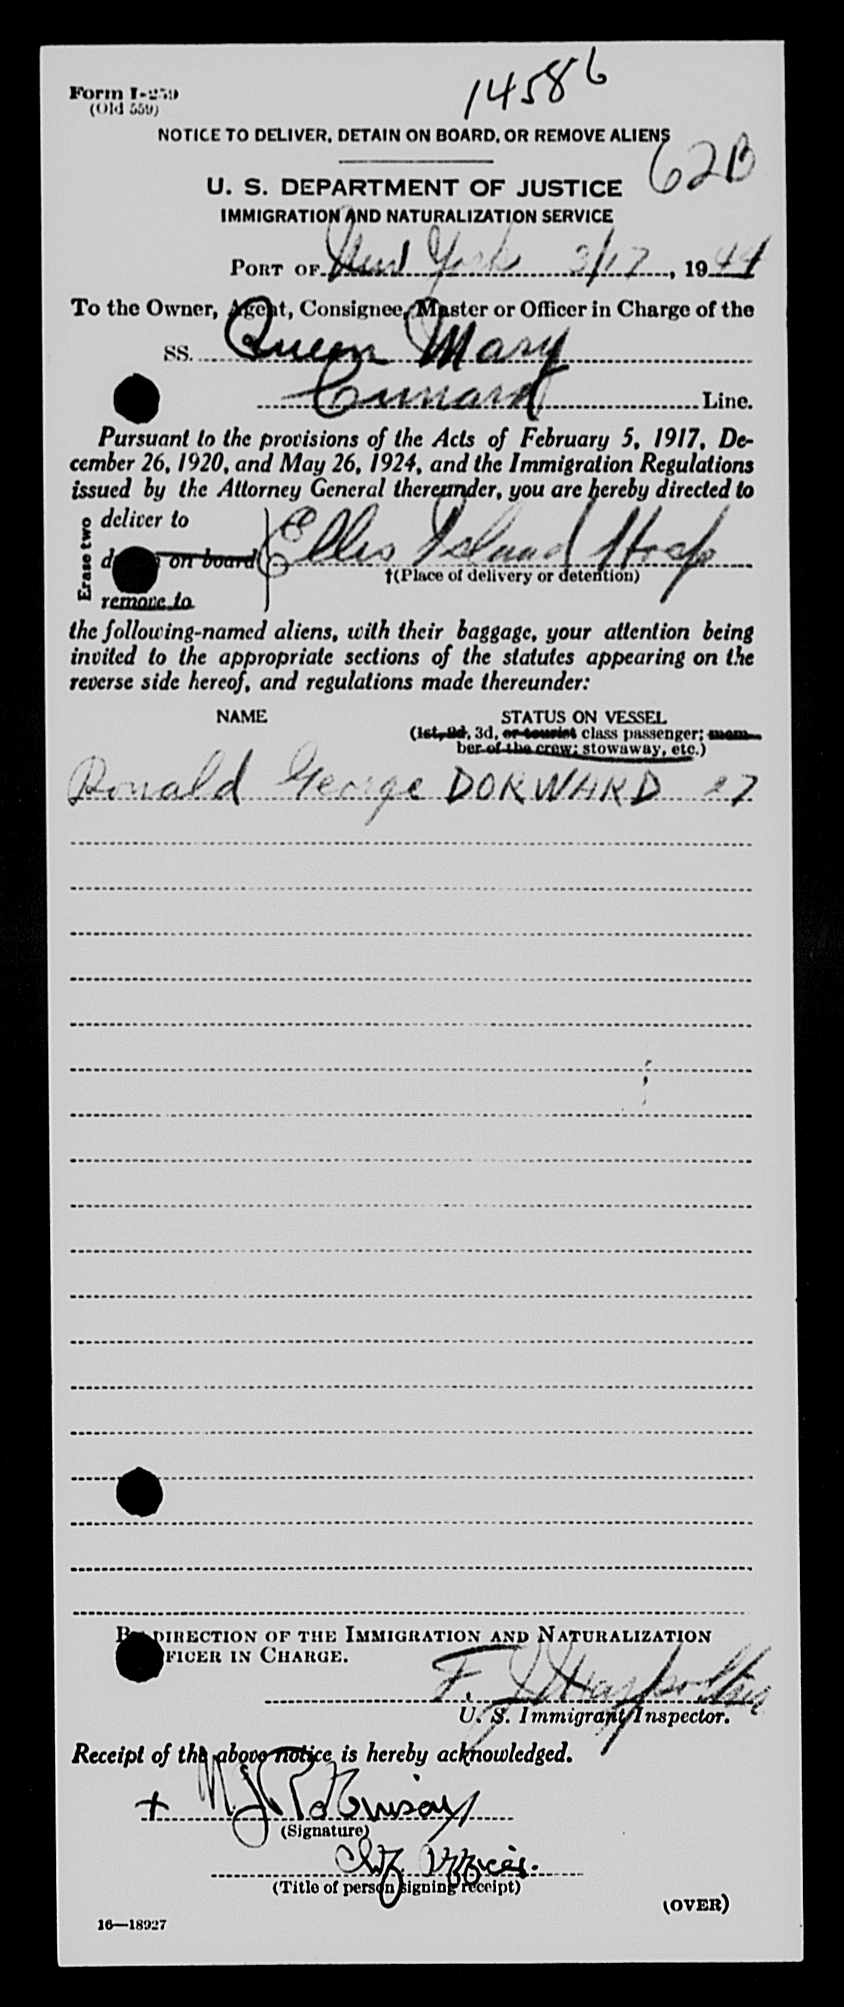 Form I-259
(Old 559)
14586
NOTICE TO DELIVER, DETAIN ON BOARD, OR REMOVE ALIENS
62B
U. S. DEPARTMENT OF JUSTICE
IMMIGRATION AND NATURALIZATION SERVICE
PORT OF New York 3/17, 1944
To the Owner, Agent, Consignee, Master or Officer in Charge of the
SS. Queen Mary
Cunard Line.
Pursuant to the provisions of the Acts of February 5, 1917, De-
cember 26, 1920, and May 26, 1924, and the Immigration Regulations
issued by the Attorney General thereunder, you are hereby directed to
Erase two
deliver to
on board
remove to
Ellis Island Hosp
†(Place of delivery or detention)
the following-named aliens, with their baggage, your attention being
invited to the appropriate sections of the statutes appearing on the
reverse side hereof, and regulations made thereunder:
NAME STATUS ON VESSEL
(1st, 2d, 3d, or tourist class passenger; mem-
ber of the crew; stowaway, etc.)
Ronald George DORWARD 27
BY DIRECTION OF THE IMMIGRATION AND NATURALIZATION
OFFICER IN CHARGE.
F.
U. S. Immigrant Inspector.
Receipt of the above notice is hereby acknowledged.
+ Robinson
(Signature)
Chf Officer.
(Title of person signing receipt)
(OVER)
16—18927